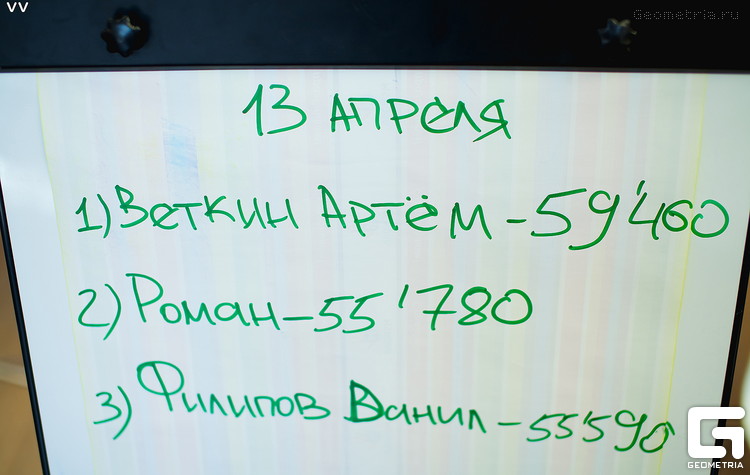 VV
Geometria.ru
13 АПРЕЛЯ
1) ВЕТКИН АРТЁМ - 59'460
2) РОМАН - 55'780
3) ФИЛИПОВ ДАНИЛ - 55'590
GEOMETRIA